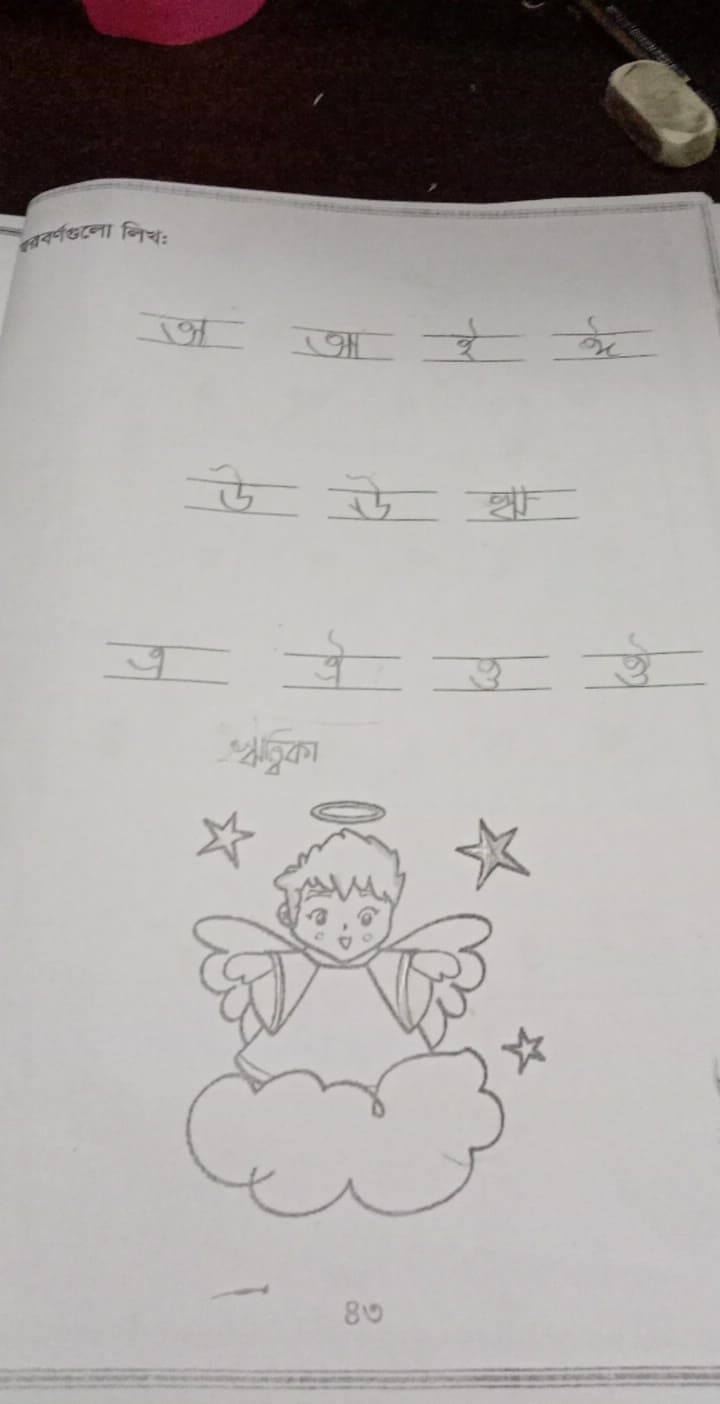 স্বরবর্ণগুলো লিখ:
অ আ ই ঈ
উ ঊ ঋ
এ ঐ ও ঔ
ঋত্বিকা
৪৩